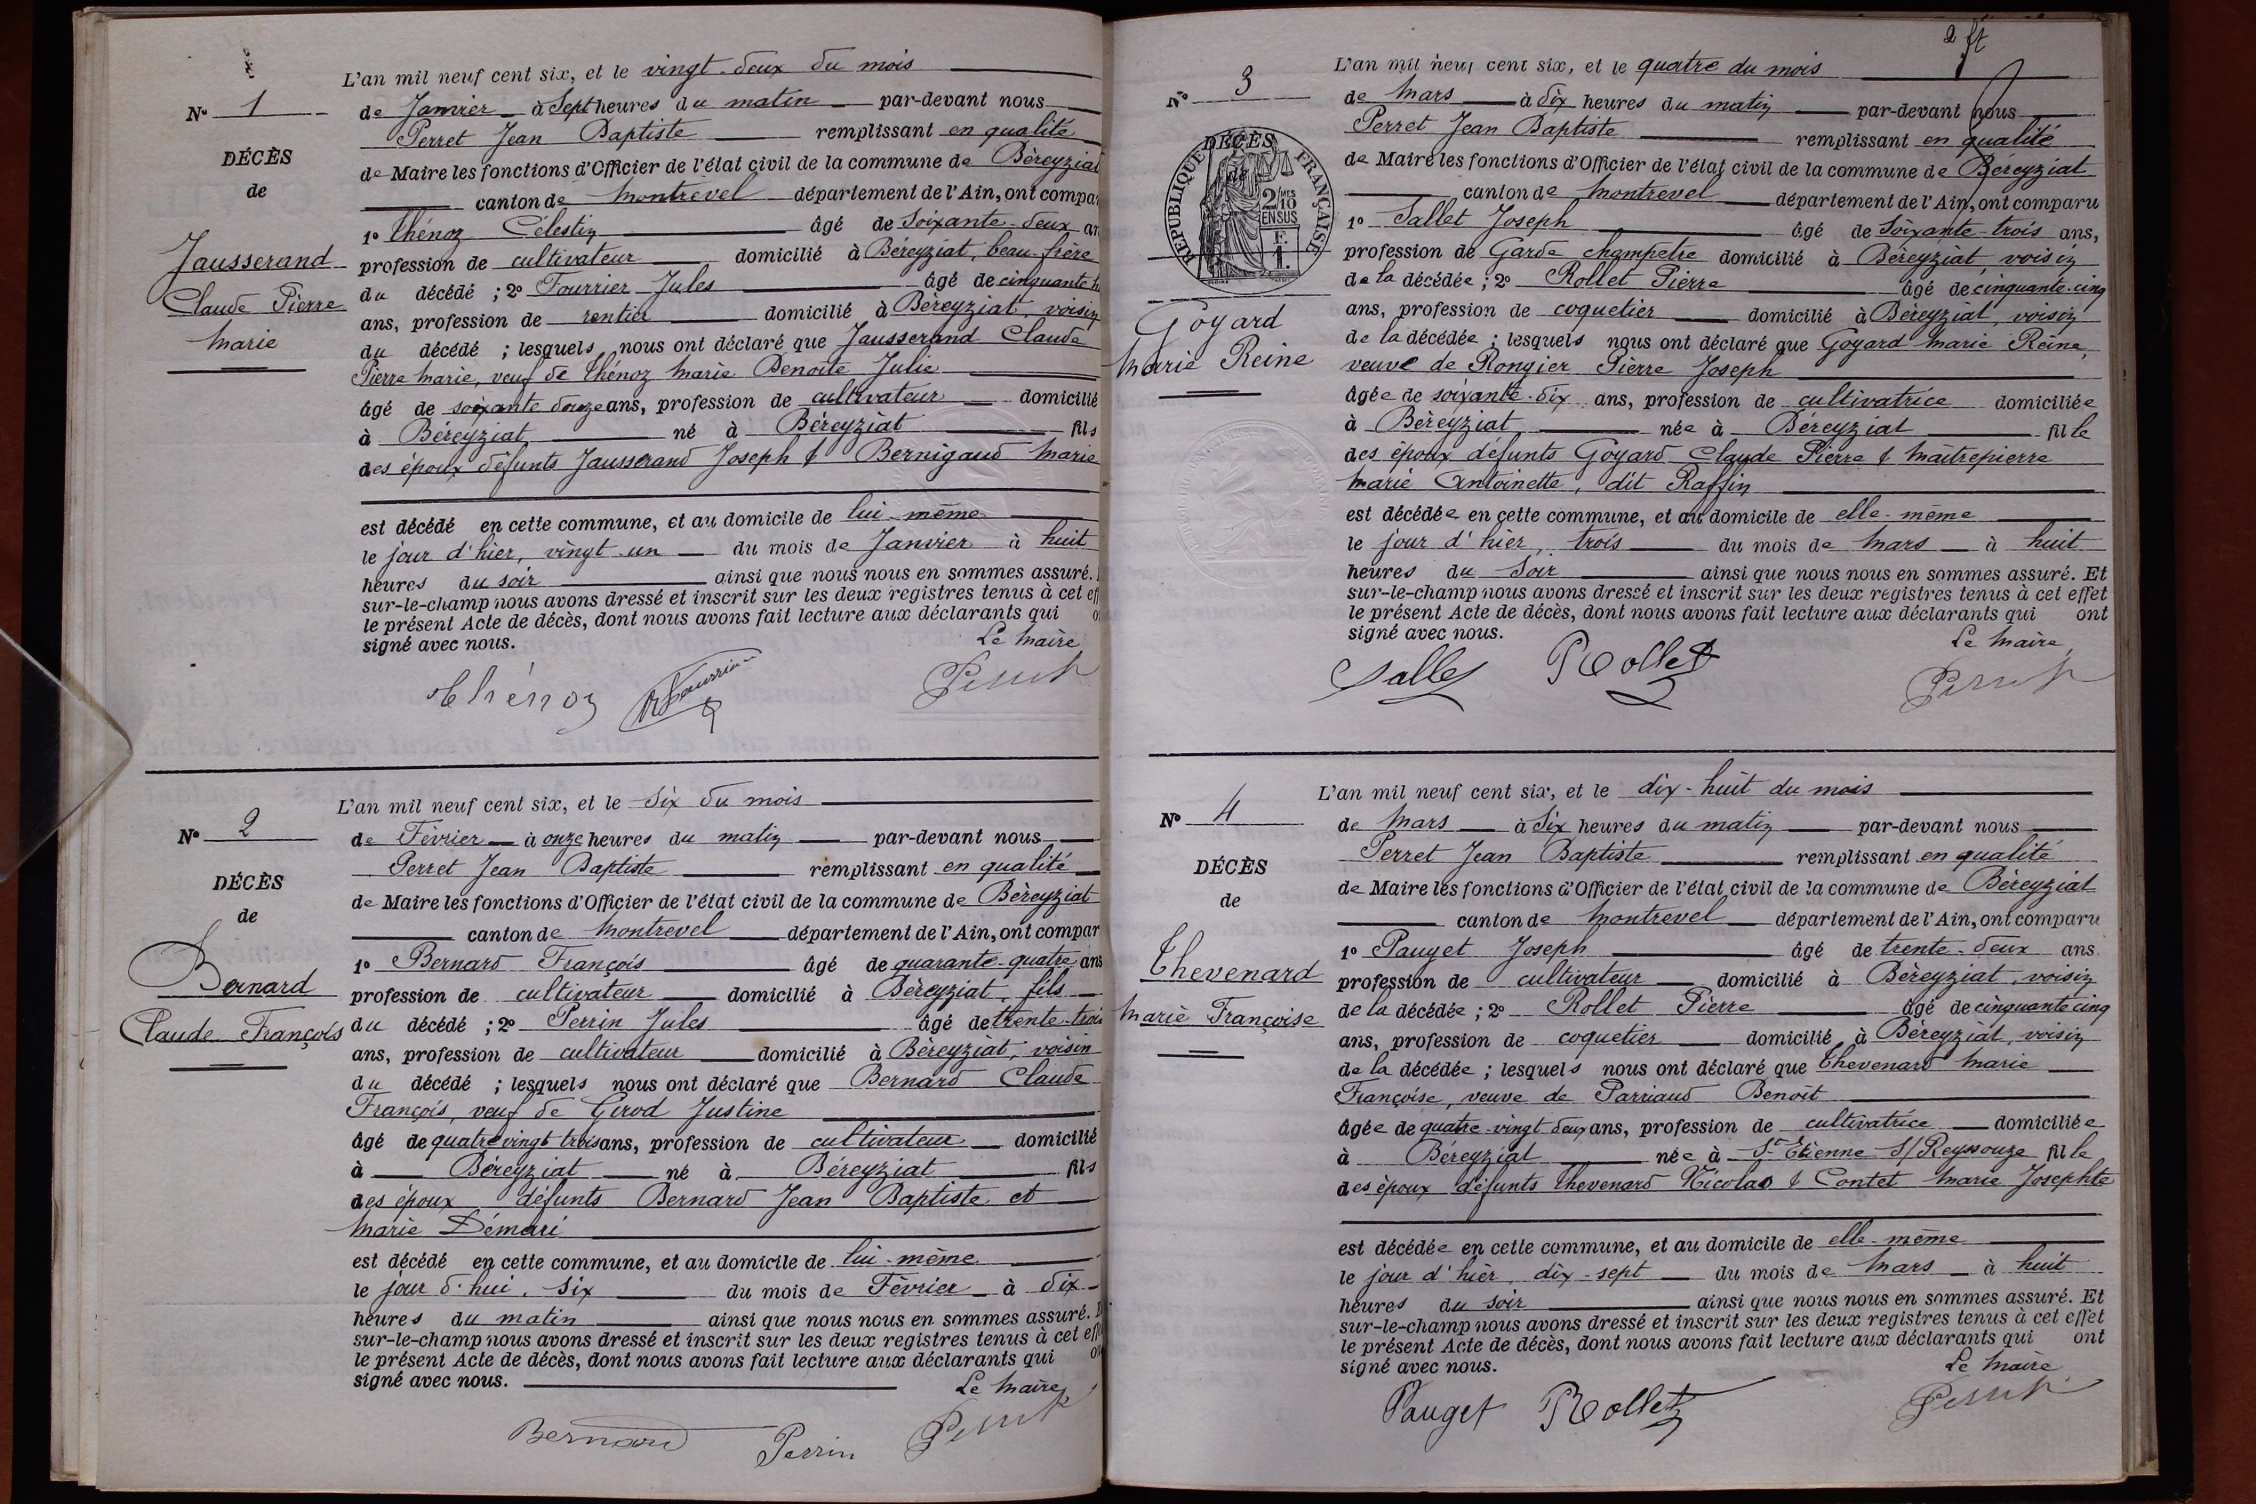 L'an mil neuf cent six, et le vingt-deux du mois
N° 1
de Janvier à Sept heures du matin par-devant nous
Perret Jean Baptiste remplissant en qualité
DÉCÈS
de Maire les fonctions d'Officier de l'état civil de la commune de Béreyziat
de
canton de Montrevel département de l'Ain, ont compar
1° Thénoz Célestin âgé de Soixante-deux an
Jausserand
profession de cultivateur domicilié à Béreyziat, beau-frère
Claude Pierre
du décédé ; 2° Fourrier Jules âgé de cinquante
ans, profession de rentier domicilié à Béreyziat, voisin
Marie
du décédé ; lesquels nous ont déclaré que Jausserand Claude
Pierre Marie, veuf de Thénoz Marie Benoîte Julie
âgé de soixante douze ans, profession de cultivateur domicilié
à Béreyziat né à Béreyziat fils
des époux défunts Jausserand Joseph & Bernigaud Marie
est décédé en cette commune, et au domicile de lui-même
le jour d'hier, vingt-un du mois de Janvier à huit
heures du soir ainsi que nous nous en sommes assuré.
sur-le-champ nous avons dressé et inscrit sur les deux registres tenus à cet eff
le présent Acte de décès, dont nous avons fait lecture aux déclarants qui o
signé avec nous.
Le Maire
Thénoz Fourrier Perret
L'an mil neuf cent six, et le Six du mois
N° 2
de Février à onze heures du matin par-devant nous
Perret Jean Baptiste remplissant en qualité
DÉCÈS
de Maire les fonctions d'Officier de l'état civil de la commune de Béreyziat
de
canton de Montrevel département de l'Ain, ont compar
1° Bernard François âgé de quarante-quatre ans
Bernard
profession de cultivateur domicilié à Béreyziat, fils
Claude François
du décédé ; 2° Perrin Jules âgé de trente-trois
ans, profession de cultivateur domicilié à Béreyziat, voisin
du décédé ; lesquels nous ont déclaré que Bernard Claude
François, veuf de Girod Justine
âgé de quatre vingt trois ans, profession de cultivateur domicilié
à Béreyziat né à Béreyziat fils
des époux défunts Bernard Jean Baptiste et
Marie
est décédé en cette commune, et au domicile de lui-même
le jour d'hui, Six du mois de Février à dix
heures du matin ainsi que nous nous en sommes assuré.
sur-le-champ nous avons dressé et inscrit sur les deux registres tenus à cet eff
le présent Acte de décès, dont nous avons fait lecture aux déclarants qui o
signé avec nous.
Le Maire
Bernard Perrin Perret
2 ft
L'an mil neuf cent six, et le quatre du mois
N° 3
de Mars à dix heures du matin par-devant nous
Perret Jean Baptiste remplissant en qualité
DÉCÈS
de
RÉPUBLIQUE FRANÇAISE
2/10 MES EN SUS
F. 1.
de Maire les fonctions d'Officier de l'état civil de la commune de Béreyziat
canton de Montrevel département de l'Ain, ont comparu
1° Sallet Joseph âgé de Soixante-trois ans,
profession de Garde champetre domicilié à Béreyziat, voisin
de la décédée ; 2° Rollet Pierre âgé de cinquante-cinq
Goyard
ans, profession de coquetier domicilié à Béreyziat, voisin
de la décédée ; lesquels nous ont déclaré que Goyard Marie Reine,
Marie Reine
veuve de Rongier Pierre Joseph
âgée de soixante-dix ans, profession de cultivatrice domiciliée
à Béreyziat née à Béreyziat fille
des époux défunts Goyard Claude Pierre & Maîtrepierre
Marie Antoinette, dit Raffin
est décédée en cette commune, et au domicile de elle-même
le jour d'hier, trois du mois de Mars à huit
heures du Soir ainsi que nous nous en sommes assuré. Et
sur-le-champ nous avons dressé et inscrit sur les deux registres tenus à cet effet
le présent Acte de décès, dont nous avons fait lecture aux déclarants qui ont
signé avec nous.
Le Maire
Sallet Rollet Perret
L'an mil neuf cent six, et le dix-huit du mois
N° 4
de Mars à Six heures du matin par-devant nous
Perret Jean Baptiste remplissant en qualité
DÉCÈS
de Maire les fonctions d'Officier de l'état civil de la commune de Béreyziat
de
canton de Montrevel département de l'Ain, ont comparu
1° Pauget Joseph âgé de trente-deux ans
Thevenard
profession de cultivateur domicilié à Béreyziat, voisin
Marie Françoise
de la décédée ; 2° Rollet Pierre âgé de cinquante cinq
ans, profession de coquetier domicilié à Béreyziat, voisin
de la décédée ; lesquels nous ont déclaré que Thevenard Marie
Françoise, veuve de Parriaud Benoit
âgée de quatre-vingt deux ans, profession de cultivatrice domiciliée
à Béreyziat née à St Etienne S/Reyssouze fille
des époux défunts Thevenard Nicolas & Contet Marie Josephte
est décédée en cette commune, et au domicile de elle-même
le jour d'hier, dix-sept du mois de Mars à huit
heures du soir ainsi que nous nous en sommes assuré. Et
sur-le-champ nous avons dressé et inscrit sur les deux registres tenus à cet effet
le présent Acte de décès, dont nous avons fait lecture aux déclarants qui ont
signé avec nous.
Le Maire
Pauget Rollet Perret